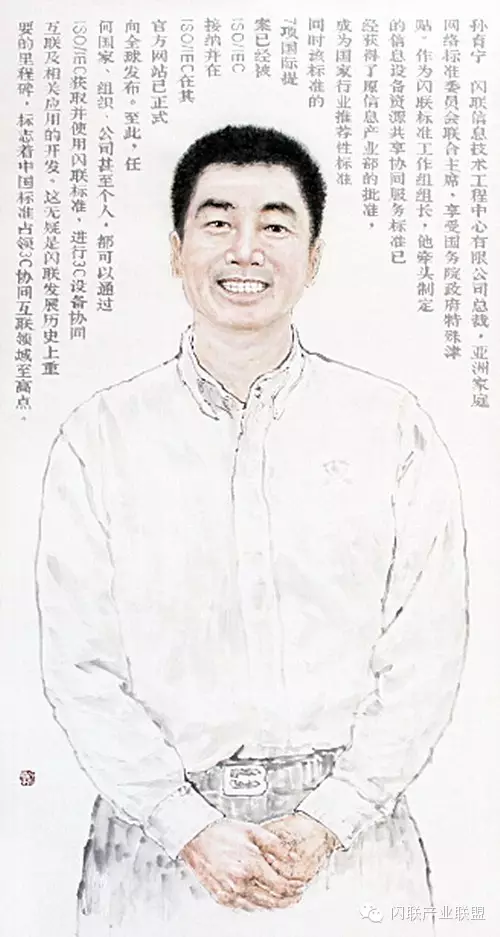 孙育宁 闪联信息技术工程中心有限公司总裁，亚洲家庭
网络标准委员会联合主席，享受国务院政府特殊津
贴。作为闪联标准工作组组长，他牵头制定
的信息设备资源共享协同服务标准已
经获得了原信息产业部的批准，
成为国家行业推荐性标准
同时该标准的
7项国际提
案已经被
ISO/IEC
接纳并在
ISO/IEC在其
官方网站已正式
向全球发布。至此，任
何国家、组织、公司甚至个人，都可以通过
ISO/IEC获取并使用闪联标准，进行3C设备协同
互联及相关应用的开发。这无疑是闪联发展历史上重
要的里程碑，标志着中国标准占领3C协同互联领域至高点。
闪联产业联盟